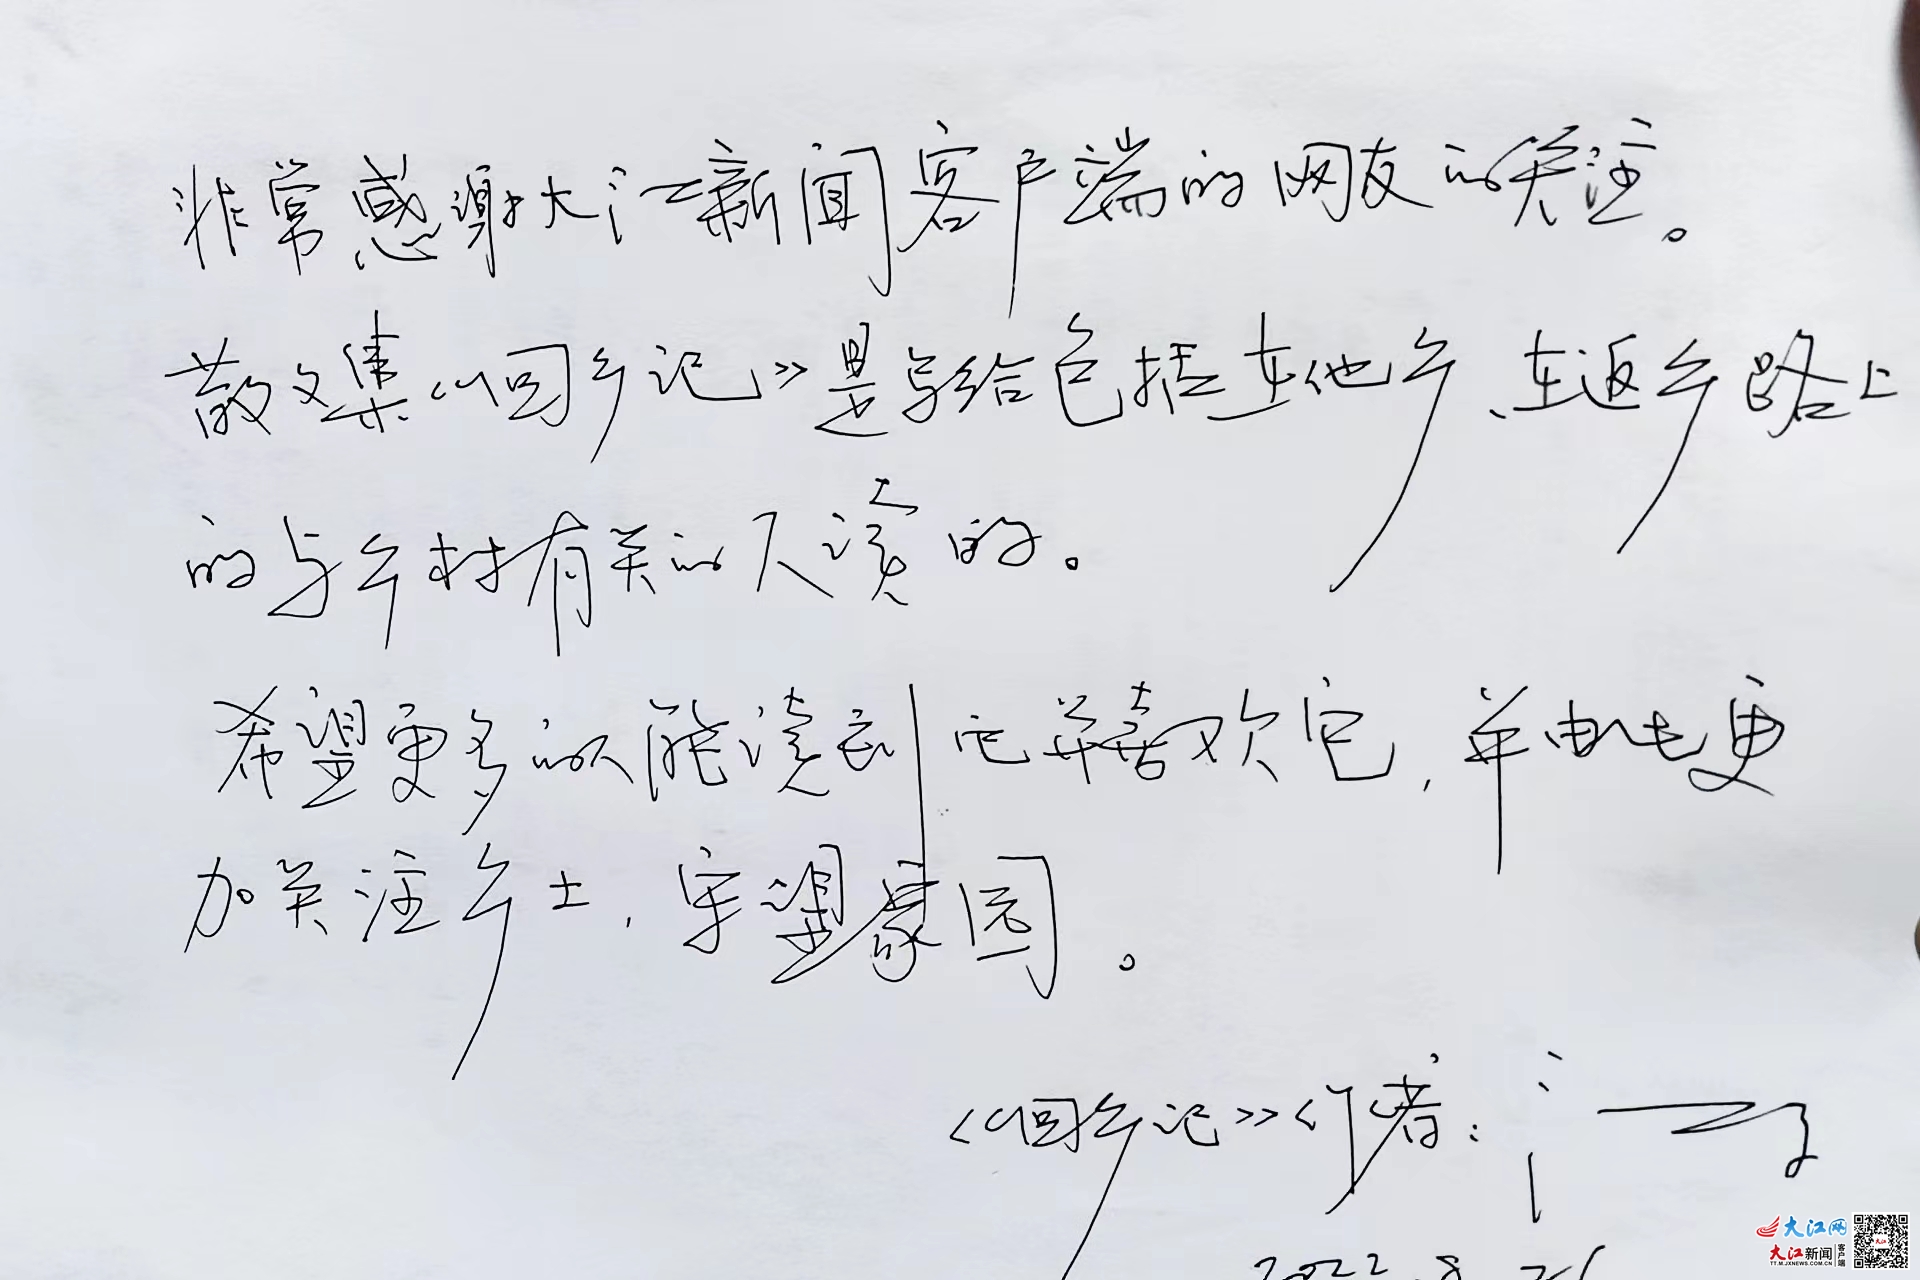 非常感谢大江新闻客户端的网友的关注。
散文集《回乡记》是写给包括在他乡、在返乡路上
的与乡村有关的人读的。
希望更多的人能读到它并喜欢它，并由此更
加关注乡土，守望家园。
《回乡记》作者：江子
2022.8.26
大江网
大江新闻
客户端
TT.M.JXNEWS.COM.CN